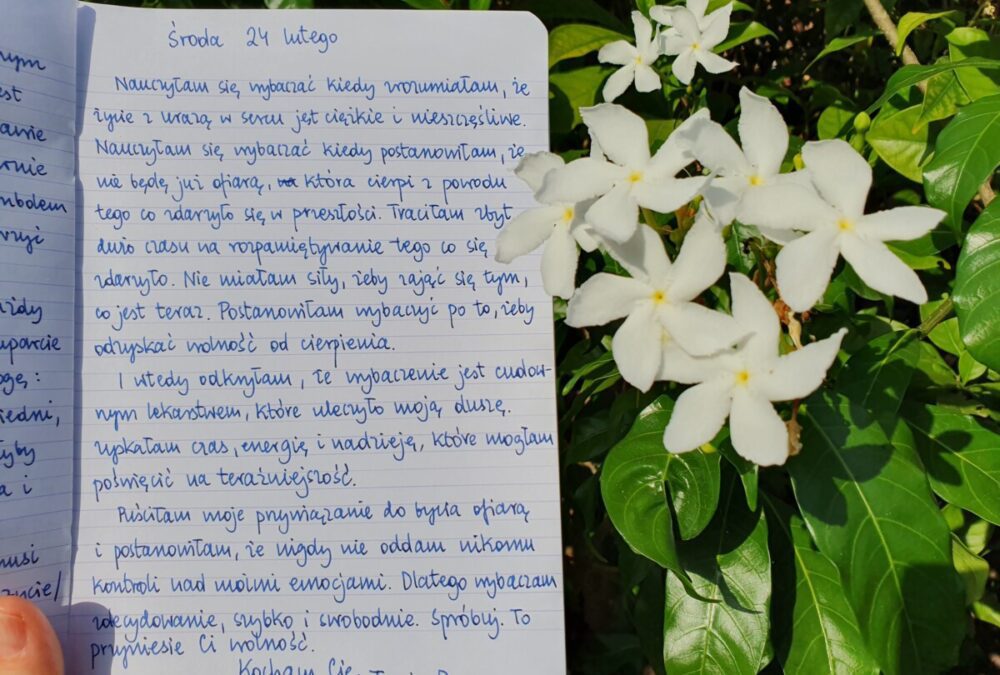 ym
est
anie
rnie
mbolem
rzyć
żdy
uparcie
ogę:
iedni,
yby
a i
musi
Środa 24 lutego
Nauczyłam się wybaczać kiedy zrozumiałam, że
życie z urazą w sercu jest ciężkie i nieszczęśliwe.
Nauczyłam się wybaczać kiedy postanowiłam, że
nie będę już ofiarą, która cierpi z powodu
tego co zdarzyło się w przeszłości. Traciłam zbyt
dużo czasu na rozpamiętywanie tego co się
zdarzyło. Nie miałam siły, żeby zająć się tym,
co jest teraz. Postanowiłam wybaczyć po to, żeby
odzyskać wolność od cierpienia.
I wtedy odkryłam, że wybaczenie jest cudow-
nym lekarstwem, które uleczyło moją duszę.
Zyskałam czas, energię i nadzieję, które mogłam
poświęcić na teraźniejszość.
Puściłam moje przywiązanie do bycia ofiarą
i postanowiłam, że nigdy nie oddam nikomu
kontroli nad moimi emocjami. Dlatego wybaczam
zdecydowanie, szybko i swobodnie. Spróbuj. To
przyniesie Ci wolność.
Kocham Cię